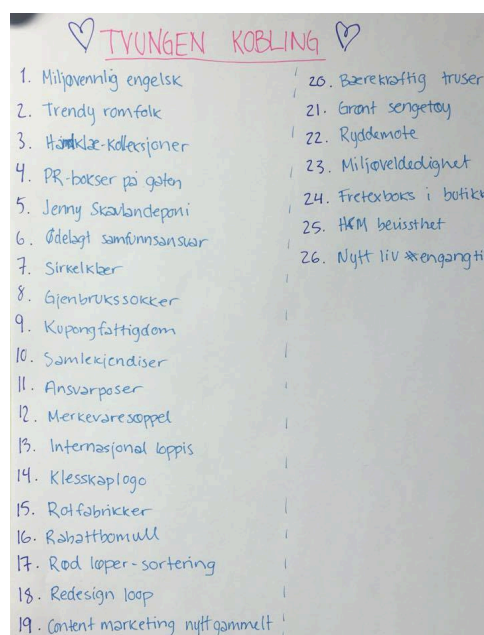 TVUNGEN KOBLING
1. Miljøvennlig engelsk
2. Trendy romfolk
3. Håndklæ-kolleksjoner
4. PR-bokser på gaten
5. Jenny Skavlandeponi
6. Ødelagt samfunnsansvar
7. Sirkelklær
8. Gjenbrukssokker
9. Kupongfattigdom
10. Samlekjendiser
11. Ansvarposer
12. Merkevaresøppel
13. Internasjonal loppis
14. Klesskaplogo
15. Rotfabrikker
16. Rabattbomull
17. Rød løper-sortering
18. Redesign loop
19. Content marketing nytt gammelt
20. Bærekraftig truser
21. Grønt sengetøy
22. Ryddemote
23. Miljøveldedighet
24. Fretexboks i butikk
25. H&M bevissthet
26. Nytt liv engangsti